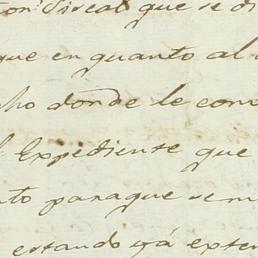 Fiscal que se di
que en quanto al
ho donde le conv
Expediente que
to paraque se m
estando yá exten